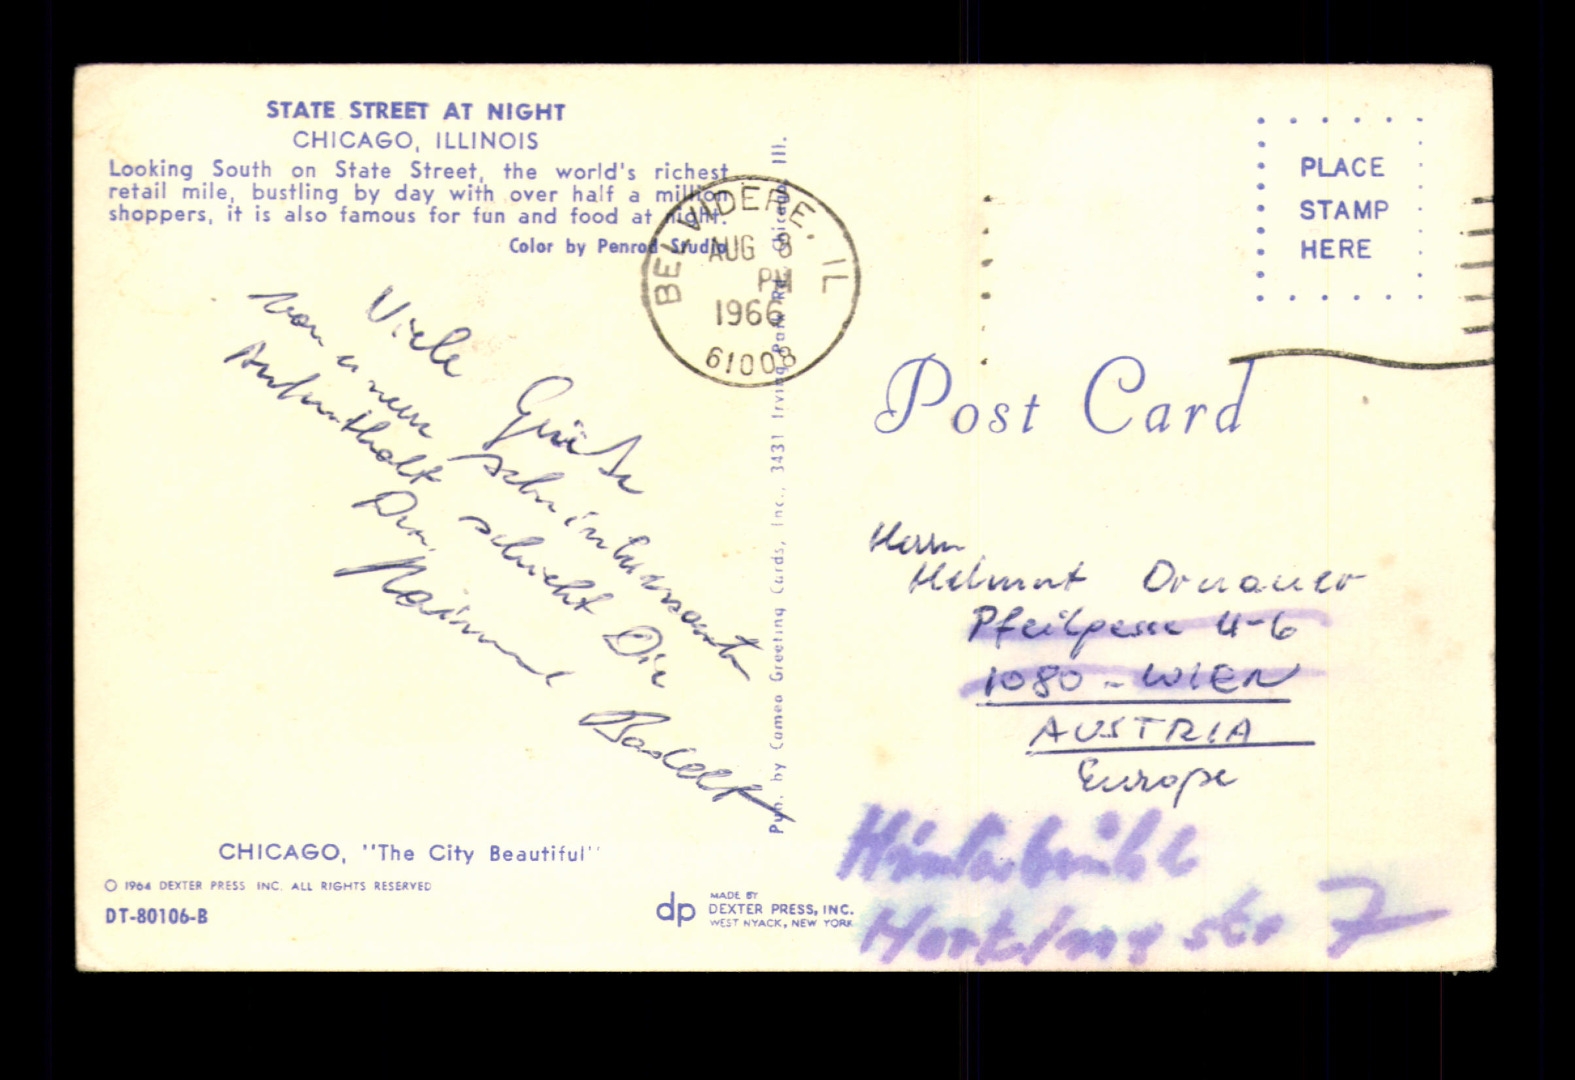 STATE STREET AT NIGHT
CHICAGO, ILLINOIS
Looking South on State Street, the world's richest
retail mile, bustling by day with over half a million
shoppers, it is also famous for fun and food at night.
Color by Penrod Studio
BELVIDERE, IL
AUG 8
PM
1966
61008
PLACE
STAMP
HERE
Post Card
Viele Grüße
von einem sehr interessanten
Aufenthalt schickt Dir
Dein
Raimund Badelt
Pub. by Cameo Greeting Cards, Inc., 3431 Irving Park Rd., Chicago, Ill.
Herrn
Helmut
Pfeilgasse 4-6
1080 - WIEN
AUSTRIA
Europe
Hinterbrühl
str 7
CHICAGO, "The City Beautiful"
© 1964 DEXTER PRESS INC. ALL RIGHTS RESERVED
DT-80106-B
dp
MADE BY
DEXTER PRESS, INC.
WEST NYACK, NEW YORK